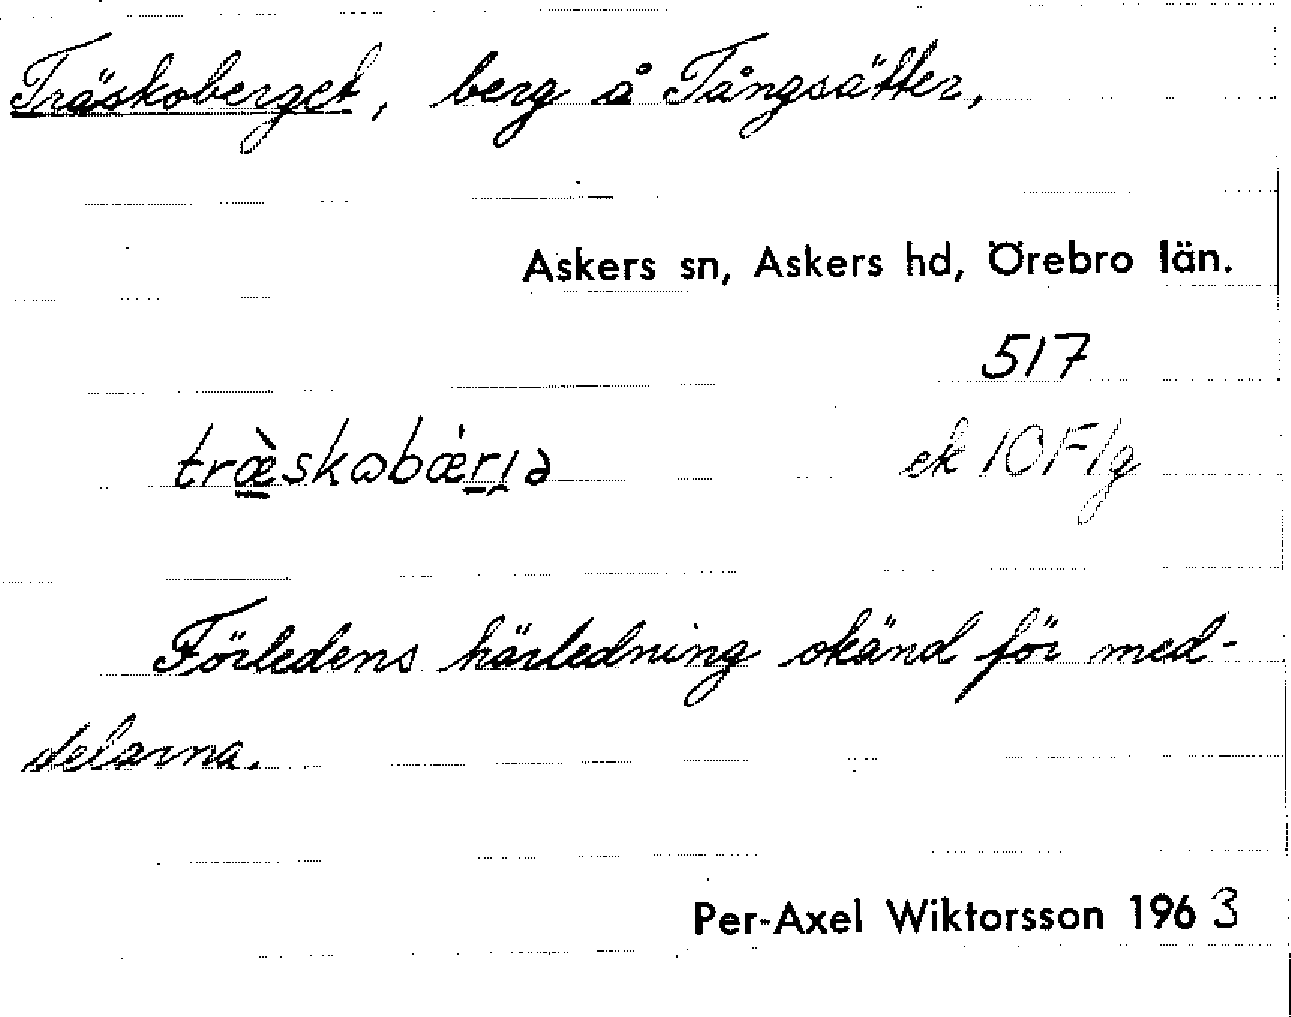 Träskoberget, berg å Tångsätter,
Askers sn, Askers hd, Örebro län.
517
træ̀skobǽrjə ek 10F1g
Förledens härledning okänd för med-
delarna.
Per-Axel Wiktorsson 1963